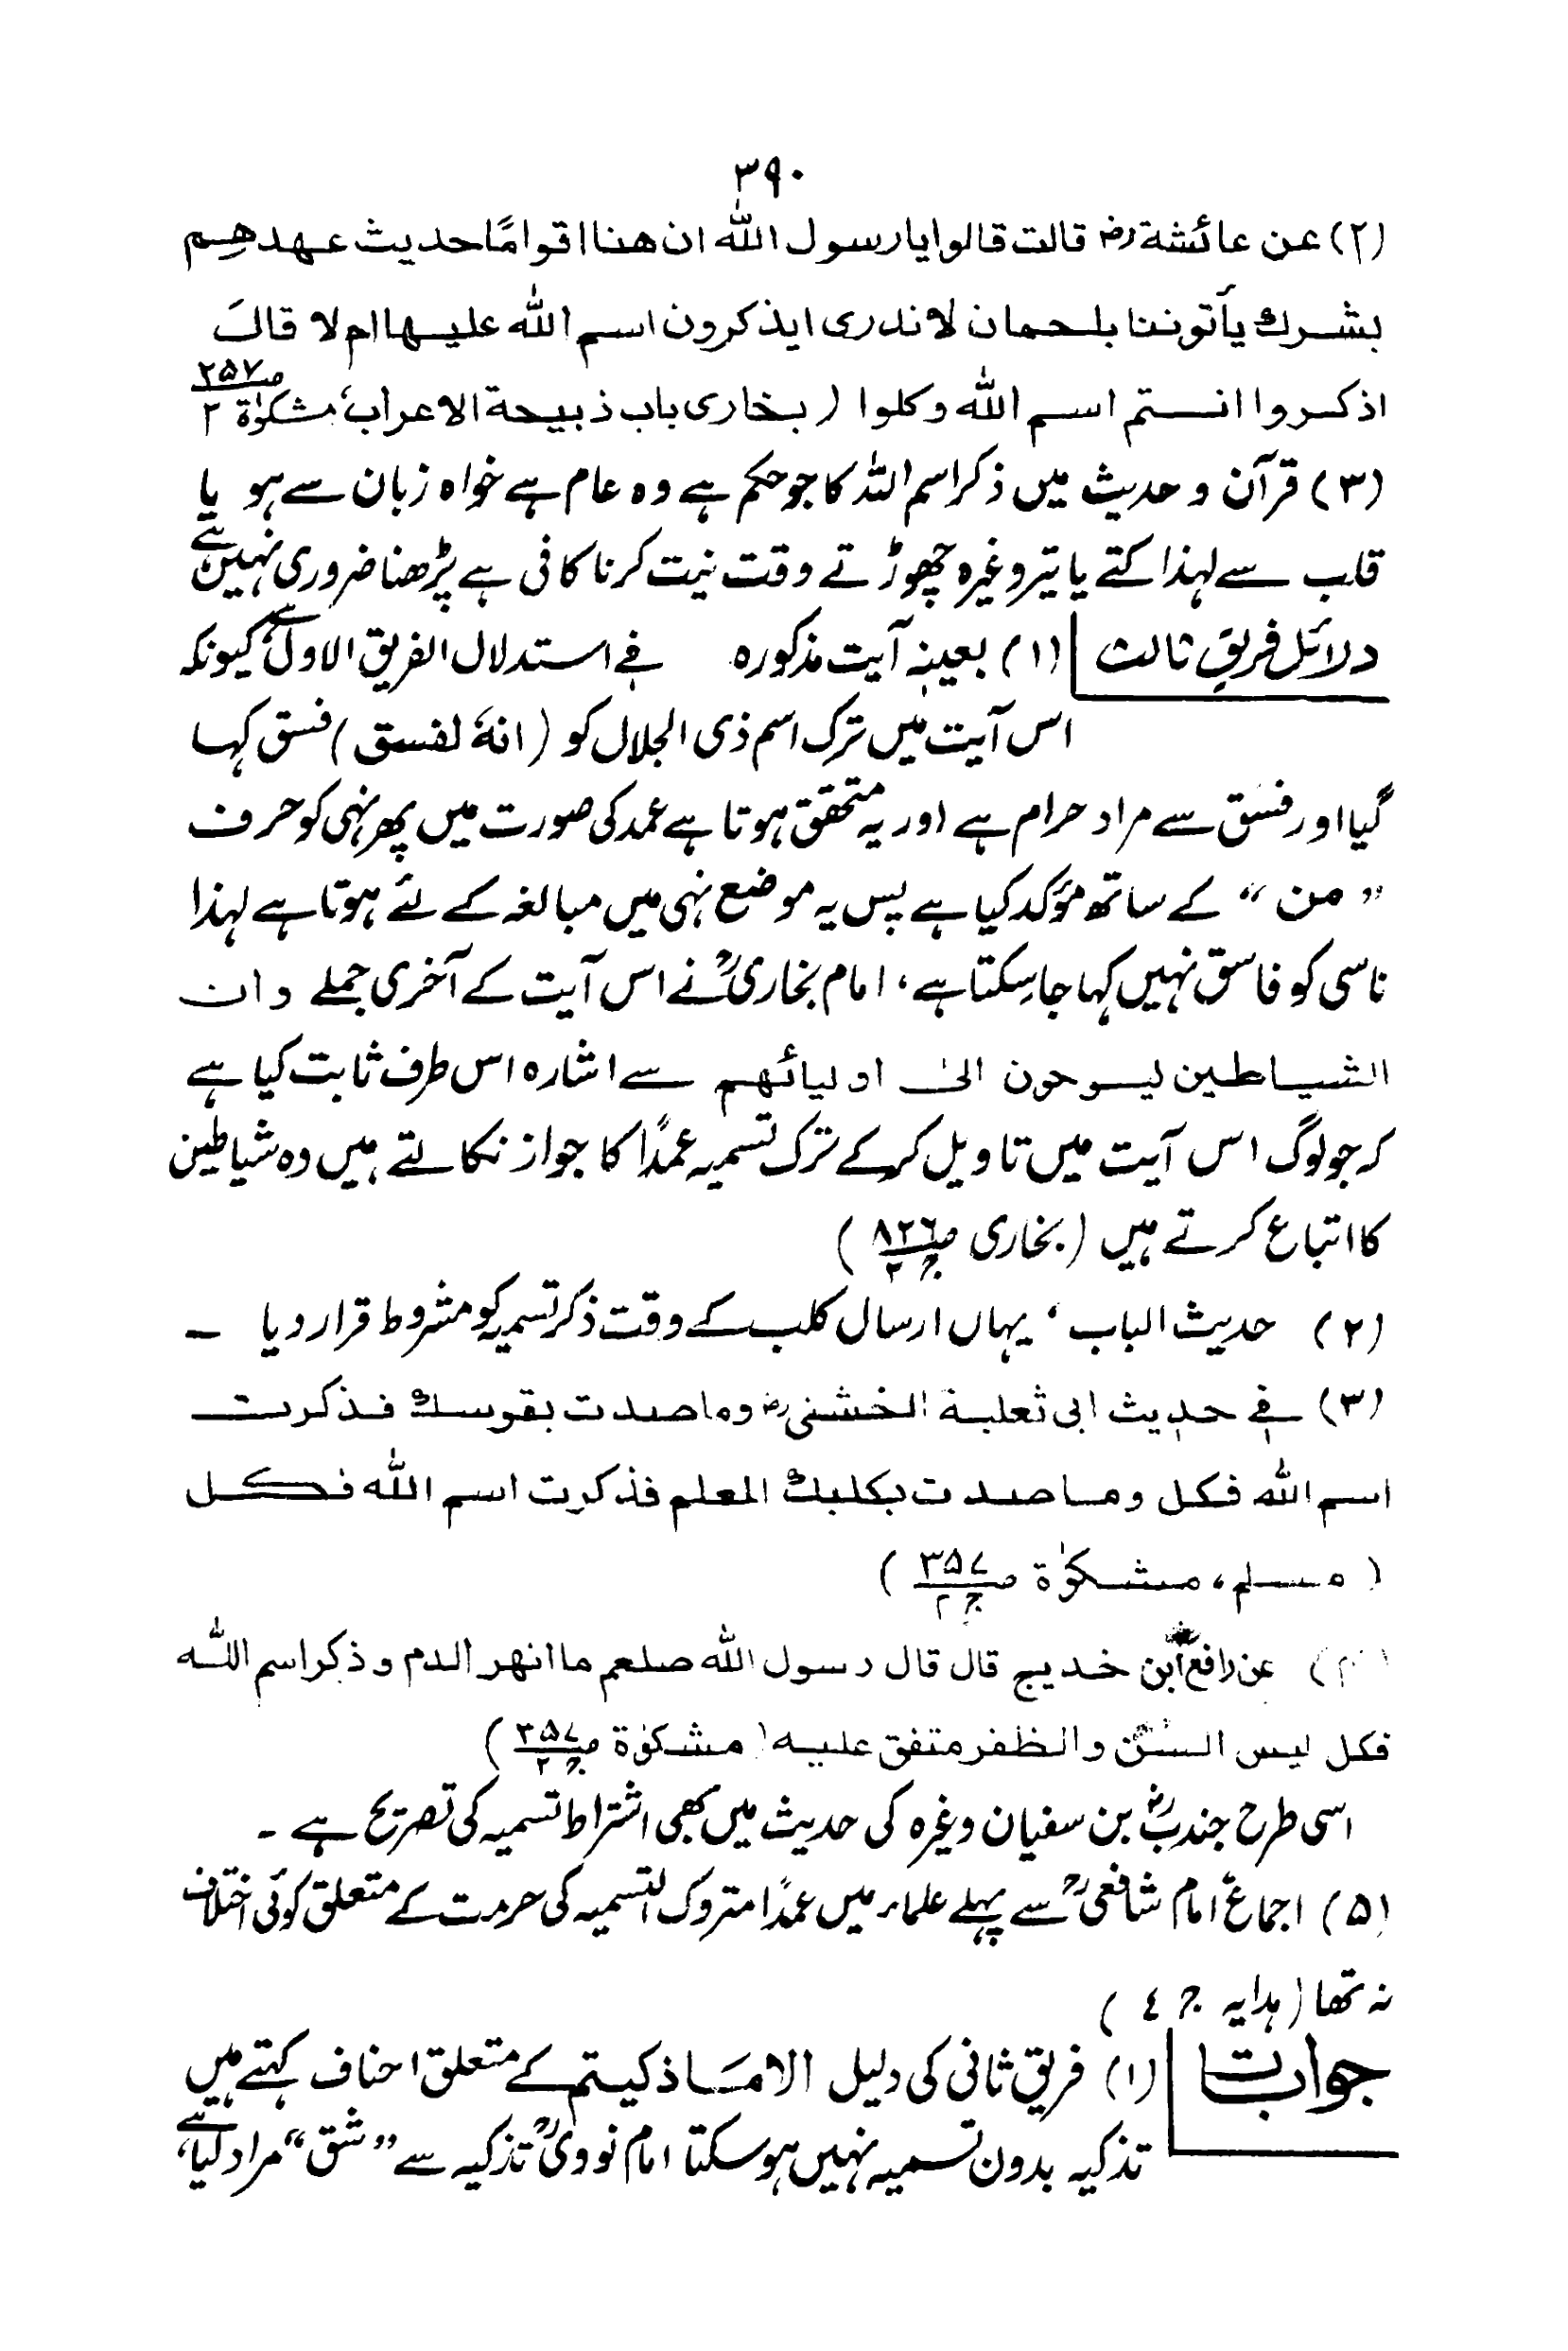 ۳۹۰
(۲) عن عائشة رض قالت قالوا یا رسول اللہ ان هنا اقوامًا حدیث عهدهم
بشرك یأتوننا بلحمان لا ندری ایذکرون اسم اللہ علیها ام لا قال
اذکروا انتم اسم اللہ وکلوا (بخاری باب ذبیحة الاعراب، مشکوٰة ص ۲۵۷ / ۲
(۳) قرآن و حدیث میں ذکر اسم اللہ کا جو حکم ہے وہ عام ہے خواہ زبان سے ہو یا
قلب سے لہذا کتے یا تیر وغیرہ چھوڑتے وقت نیت کرنا کافی ہے پڑھنا ضروری نہیں ہے
دلائل فریقِ ثالث (۱) بعینہٖ آیت مذکورہ فی استدلال الفریق الاول ہے کیونکہ
اس آیت میں ترک اسم ذی الجلال کو (انهٗ لفسق) فسق کہا
گیا اور فسق سے مراد حرام ہے اور یہ متحقق ہوتا ہے عمد کی صورت میں پھر نہی کو حرف
”من“ کے ساتھ مؤکد کیا ہے پس یہ موضع نہی میں مبالغہ کے لئے ہوتا ہے لہذا
ناسی کو فاسق نہیں کہا جاسکتا ہے، امام بخاریؒ نے اس آیت کے آخری جملے وان
الشیاطین لیوحون الیٰ اولیائهم سے اشارہ اس طرف ثابت کیا ہے
کہ جو لوگ اس آیت میں تاویل کرکے ترک تسمیہ عمدًا کا جواز نکالتے ہیں وہ شیاطین
کا اتباع کرتے ہیں (بخاری ص ۸۲۶ / ج ۲)
(۲) حدیث الباب، یہاں ارسال کلب کے وقت ذکر تسمیہ کو مشروط قرار دیا ۔
(۳) فی حدیث ابی ثعلبة الخشنی رض وما صدت بقوسك فذکرت
اسم اللہ فکل وما صدت بکلبك المعلم فذکرت اسم اللہ فکل
(مسلم، مشکوٰة ص ۳۵۷ / ج ۲)
(۴) عن رافع ابن خدیج قال قال رسول اللہ صلعم ما انهر الدم وذکر اسم اللہ
فکل لیس السن والظفر متفق علیه (مشکوٰة ص ۳۵۷ / ج ۲)
اسی طرح جندبؓ بن سفیان وغیرہ کی حدیث میں بھی اشتراط تسمیہ کی تصریح ہے ۔
(۵) اجماع امام شافعیؒ سے پہلے علماء میں عمدًا متروک التسمیہ کی حرمت کے متعلق کوئی اختلاف
نہ تھا (ہدایہ ج ٤)
جوابات (۱) فریق ثانی کی دلیل الا ما ذکیتم کے متعلق احناف کہتے ہیں
تذکیہ بدون تسمیہ نہیں ہوسکتا امام نوویؒ تذکیہ سے ”شق“ مراد لیا ہے،